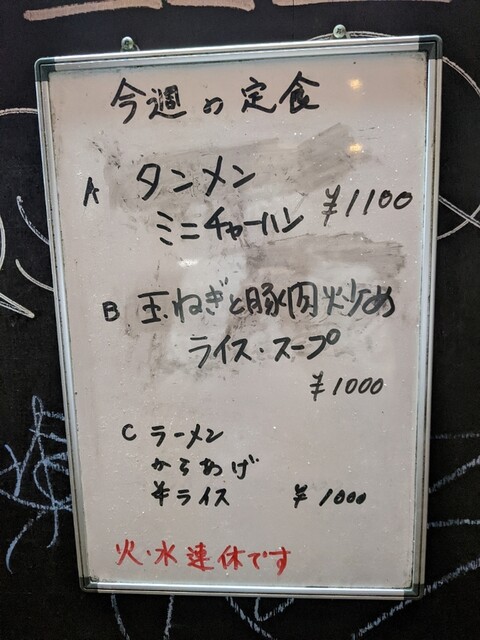 今週の定食
A タンメン
ミニチャーハン ¥1100
B 玉ねぎと豚肉炒め
ライス・スープ
¥1000
C ラーメン
からあげ
半ライス ¥1000
火・水連休です